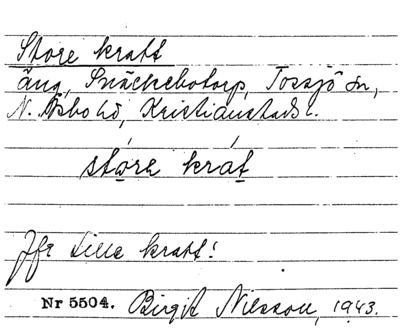 Store kratt
äng, Snäckebotorp, Tossjö sn,
N. Åsbo hd, Kristianstads l.
stóre krát
Jfr Lille kratt!
Nr 5504. Birgit Nilsson, 1943.